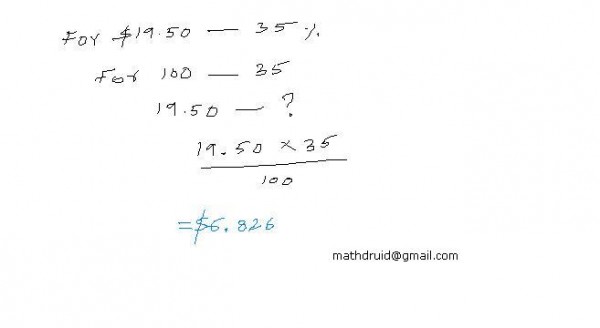 For $19.50 — 35 %.
For 100 — 35
19.50 — ?
19.50 × 35
100
= $6.826
mathdruid@gmail.com